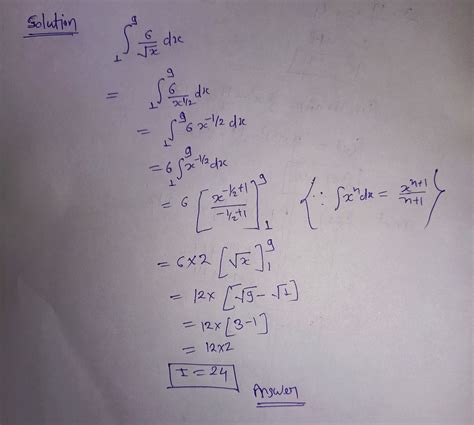 Solution
∫₁⁹ 6/√x dx
= ∫₁⁹ 6/x^1/2 dx
= ∫₁⁹ 6 x^-1/2 dx
= 6 ∫₁⁹ x^-1/2 dx
= 6 [ x^-1/2+1 / -1/2+1 ]₁⁹ { ∵ ∫x^n dx = x^n+1 / n+1 }
= 6×2 [√x]₁⁹
= 12× [√9 - √1]
= 12× [3-1]
= 12×2
I = 24
Answer